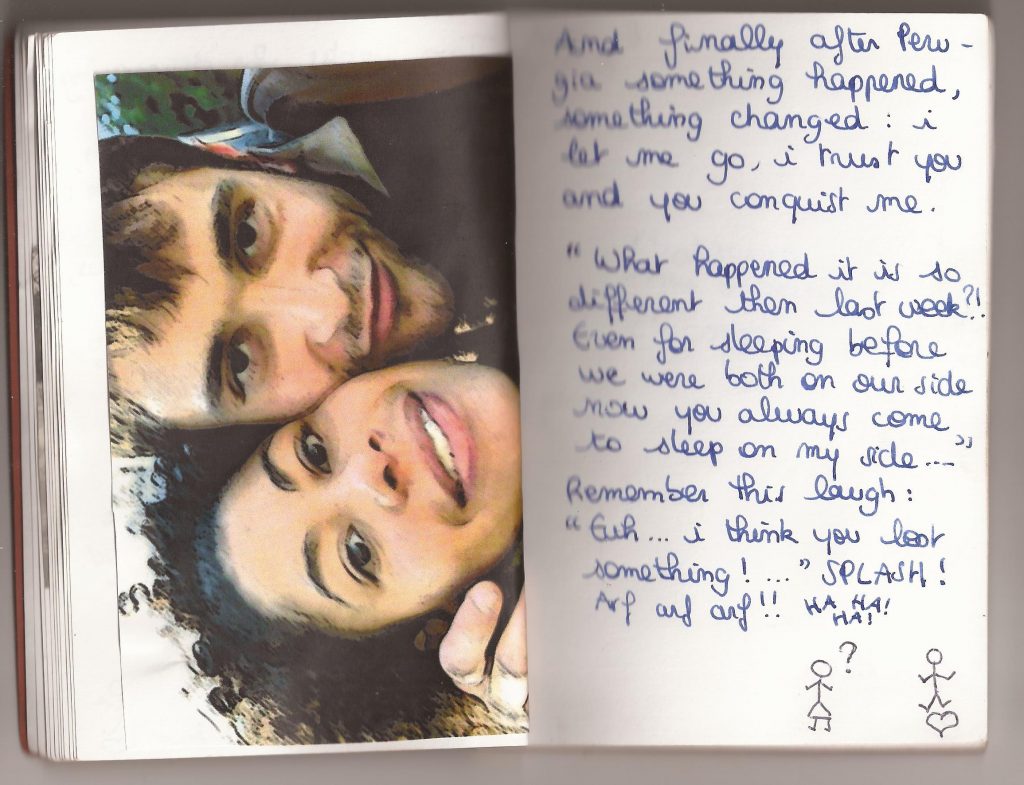 And finally after Peru-
gia something happened,
something changed : i
let me go, i trust you
and you conquist me.
"What happened it is so
different then last week?!
Even for sleeping before
we were both on our side
now you always come
to sleep on my side...."
Remember this laugh :
"Euh... i think you lost
something! ..." SPLASH!
Arf arf arf!! HA HA!
HA!
?